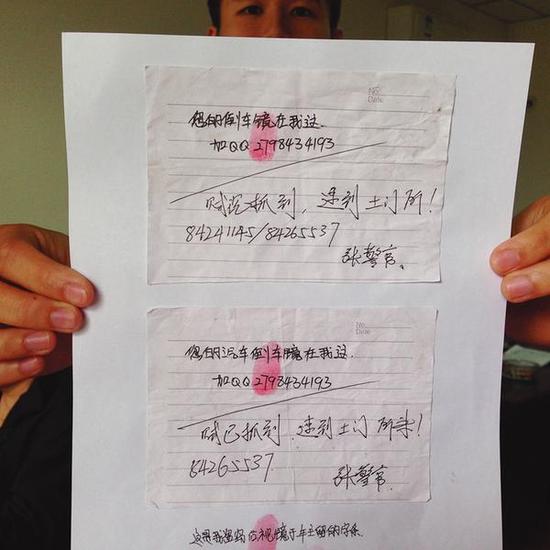 No.
Date
您的倒车镜在我这.
加QQ 2798434193
贼已抓到,速到土门所!
84241145/84265537
张警官.
No.
Date
您的汽车倒车镜在我这.
加QQ 2798434193
贼已抓到 速到土门所来!
84265537
张警官.
这是我盗窃后视镜于车主留的字条